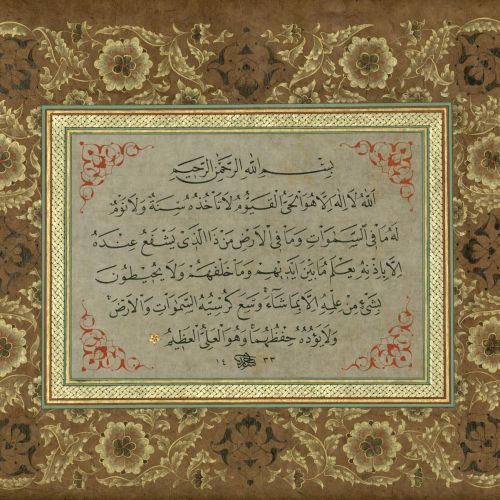 بِسْمِ اللهِ الرَّحْمٰنِ الرَّحِيمِ
اَللهُ لَا اِلٰهَ اِلَّا هُوَ الْحَيُّ الْقَيُّومُ لَا تَأْخُذُهُ سِنَةٌ وَلَا نَوْمٌ
لَهُ مَا فِي السَّمٰوَاتِ وَمَا فِي الْاَرْضِ مَنْ ذَا الَّذِي يَشْفَعُ عِنْدَهُ
اِلَّا بِاِذْنِهِ يَعْلَمُ مَا بَيْنَ اَيْدِيهِمْ وَمَا خَلْفَهُمْ وَلَا يُحِيطُونَ
بِشَيْءٍ مِنْ عِلْمِهِ اِلَّا بِمَا شَاءَ وَسِعَ كُرْسِيُّهُ السَّمٰوَاتِ وَالْاَرْضَ
وَلَا يَؤُدُهُ حِفْظُهُمَا وَهُوَ الْعَلِيُّ الْعَظِيمُ
١٤٣٣